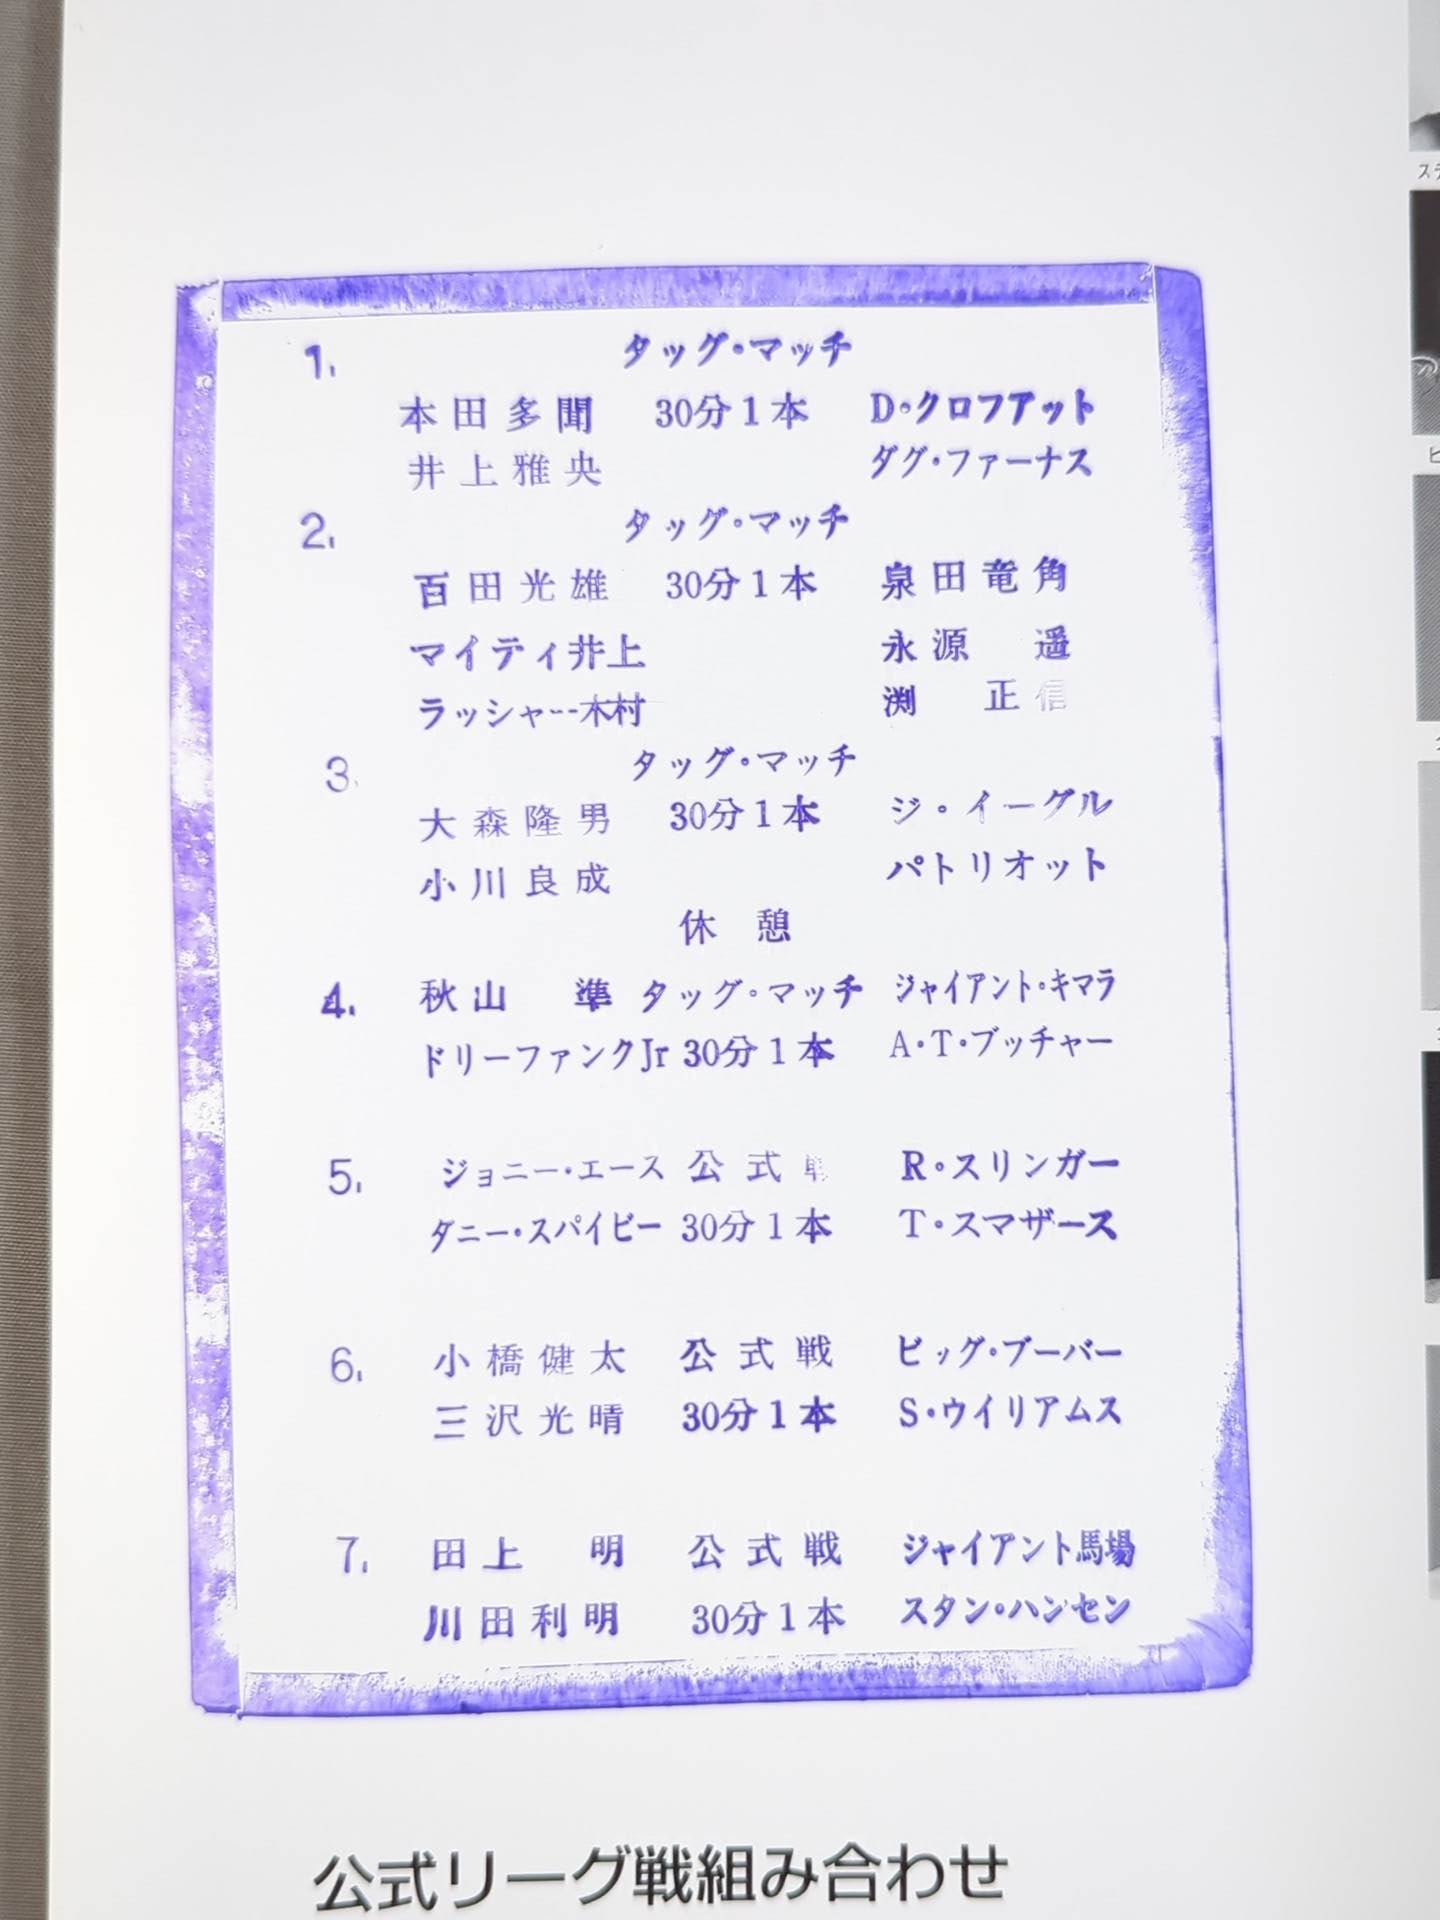 1. タッグ・マッチ
本田多聞 30分1本 D・クロフアット
井上雅央 ダグ・ファーナス
2. タッグ・マッチ
百田光雄 30分1本 泉田竜角
マイティ井上 永源 遥
ラッシャー木村 渕 正信
3. タッグ・マッチ
大森隆男 30分1本 ジ・イーグル
小川良成 パトリオット
休憩
4. 秋山 準 タッグ・マッチ ジャイアント・キマラ
ドリーファンクJr 30分1本 A・T・ブッチャー
5. ジョニー・エース 公式戦 R・スリンガー
ダニー・スパイビー 30分1本 T・スマザース
6. 小橋健太 公式戦 ビッグ・ブーバー
三沢光晴 30分1本 S・ウイリアムス
7. 田上 明 公式戦 ジャイアント馬場
川田利明 30分1本 スタン・ハンセン
公式リーグ戦組み合わせ